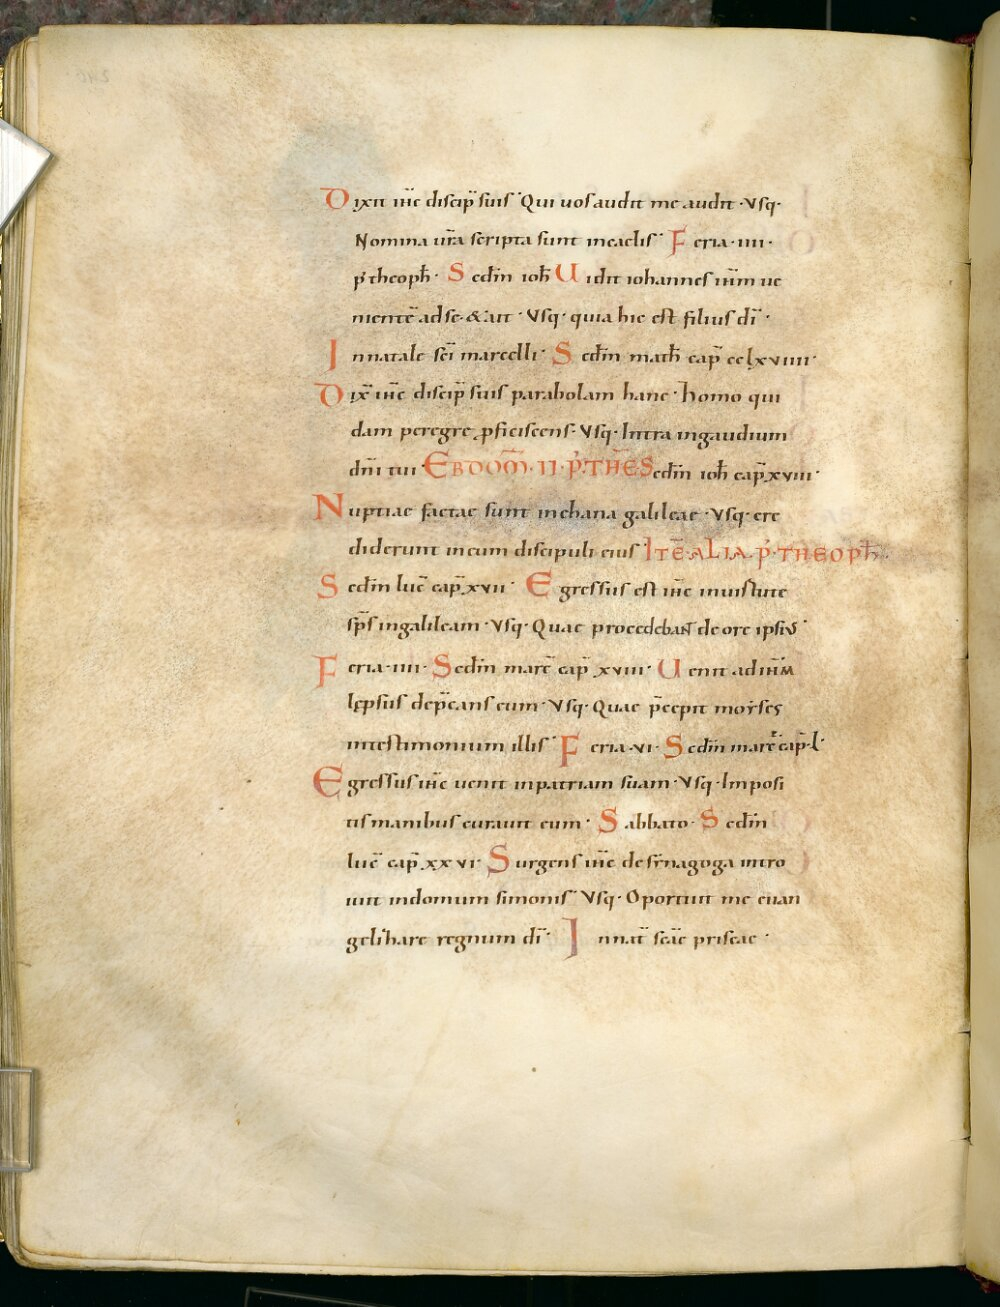 Dixit ihc discip̄ suis · Qui uos audit me audit · Vsq·
Nomina ur̄a scripta sunt in caelis · Feria · iiii ·
p̄ theoph̄ · Sedm̄ ioh̄ Uidit iohannes ihm̄ ue
nientē ad se · & ait · Vsq· quia hic est filius dī ·
In natale scī marcelli · Sedm̄ math̄ cap̄ cclxviiii ·
Dix̄ ihc̄ discip̄ suis parabolam hanc · homo qui
dam peregre ꝓficiscens · Vsq· Intra in gaudium
dn̄i tui · EBDOM̄ · II · P̄ · THE Sedm̄ ioh̄ cap̄ xviii ·
Nuptiae factae sunt in chana galileae · Vsq· cre
diderunt in eum discipuli eius · ITĒ ALIA · P̄ · THEOPH̄ ·
Sedm̄ luc̄ cap̄ xvii · Egressus est ihc̄ in uirtute
sp̄s in galileam · Vsq· Quae procedebant de ore ipsius ·
Feria · iiii · Sedm̄ marc̄ cap̄ xviii · Uenit ad ihm̄
lepsus dep̄cans eum · Vsq· Quae p̄cepit moyses
in testimonium illis · Feria · vi · Sedm̄ marc̄ cap̄ · l ·
Egressus ihc̄ uenit in patriam suam · Vsq· Imposi
tis manibus curauit eum · Sabbato · Sedm̄
luc̄ cap̄ xxvi · Surgens ihc̄ de synagoga intro
iuit in domum simonis · Vsq· Oportuit me euan
gelizare regnum dī · In nat̄ scāe priscae ·